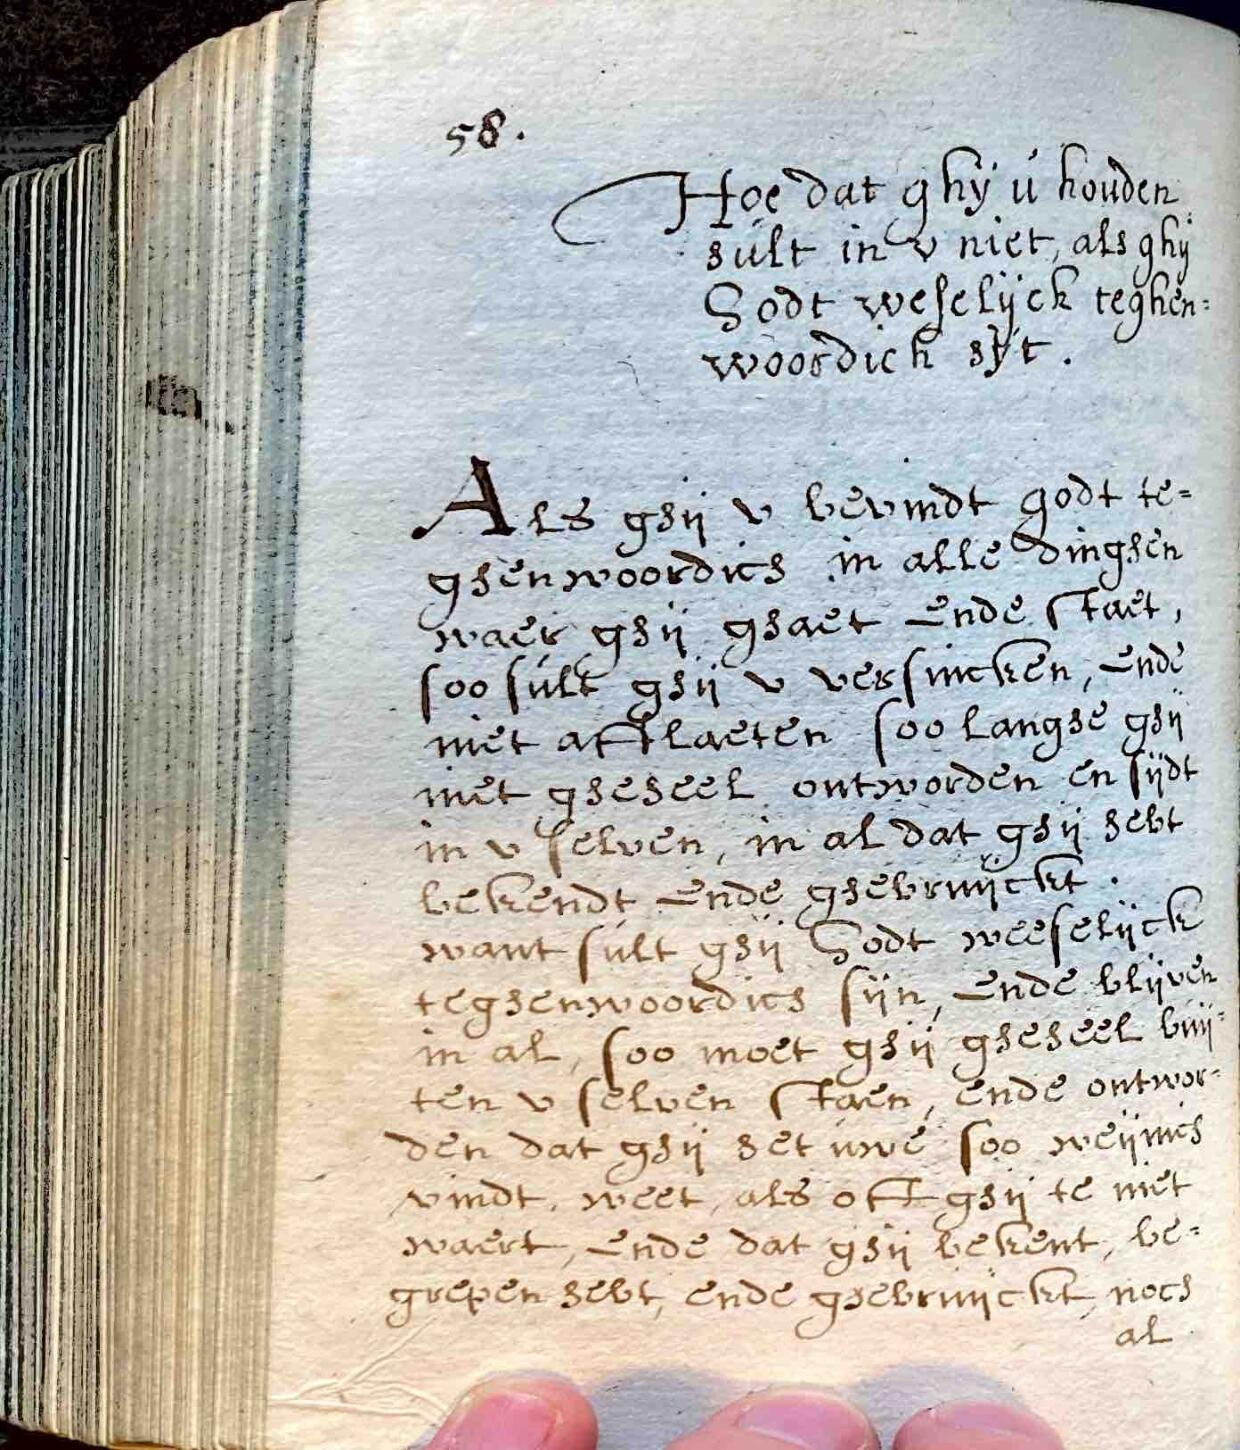 58.
Hoe dat ghÿ ú houden
súlt in v niet, als ghij
Godt weselijck teghen=
woordich sÿt.
Als ghij v bevindt godt te=
ghenwoordich in alle dinghen
waer ghij ghaet ende staet,
soo súlt ghij v versincken, ende
niet afflaeten soo langhe ghij
niet gheheel ontworden en sijdt
in v selven, in al dat ghij hebt
bekendt ende ghebruijckt.
want súlt ghij Godt weeselijck
teghenwoordich sijn, ende blijven
in al, soo moet ghij gheheel buij=
ten v selven staen, ende ontwor=
den dat ghij het úwe soo weijnich
vindt, weet, als oft ghij te niet
waert, ende dat ghij bekent, be=
grepen hebt, ende ghebruijckt, noch
al